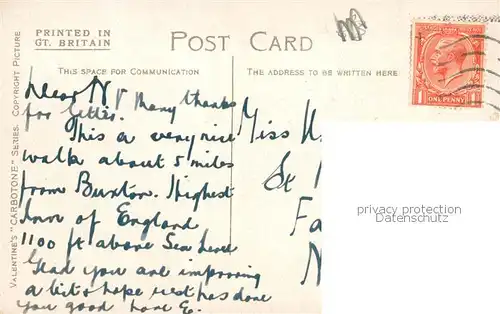 PRINTED IN
GT. BRITAIN
POST CARD
THIS SPACE FOR COMMUNICATION
THE ADDRESS TO BE WRITTEN HERE
VALENTINE'S "CARBOTONE" SERIES. COPYRIGHT PICTURE
ONE PENNY
Dear N Many thanks
for letter.
This a very nice
walk about 5 miles
from Buxton. Highest
Inn of England
1100 ft above Sea Level
Glad you are improving
a bit & hope rest has done
you good love E.
Miss
St
Fa
N
privacy protection
Datenschutz